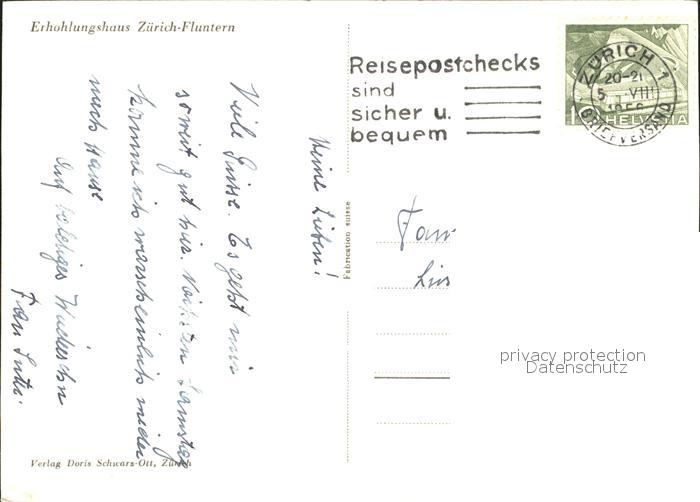 Erhohlungshaus Zürich-Fluntern
Reisepostchecks
sind
sicher u.
bequem
ZÜRICH 1
20-21
5. VIII
1956
BRIEFVERSAND
HELVETIA
Meine Lieben!
Viele Grüsse. Es geht mir
soweit gut hier. Nächsten Samstag
komme ich warscheinlich wieder
nach Hause
Auf baldiges Wiedersehn
Frau
Fabrication suisse
Fam
privacy protection
Datenschutz
Verlag Doris Schwarz-Ott, Zürich